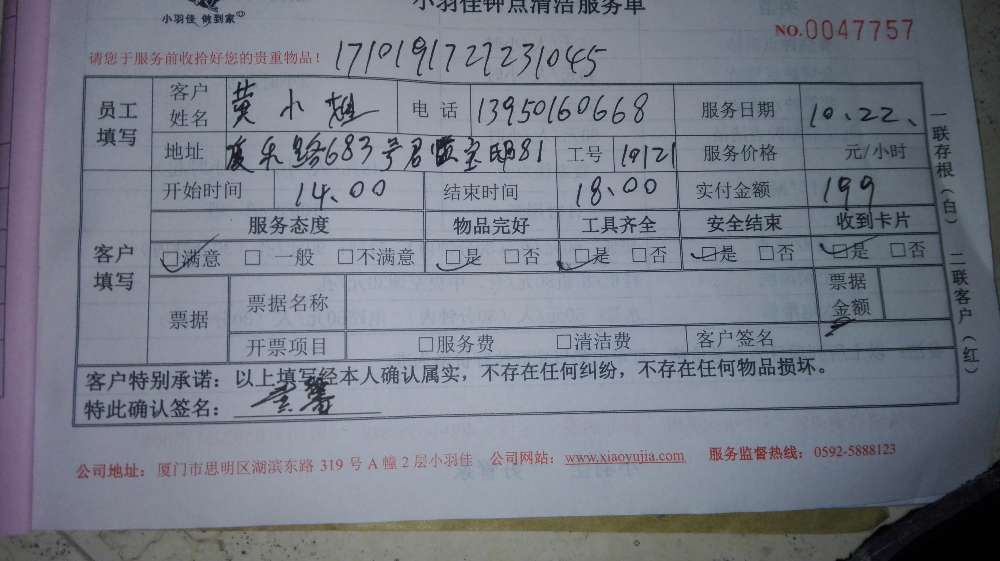 小羽佳 做到家
小羽佳钟点清洁服务单
NO.0047757
请您于服务前收拾好您的贵重物品！
员工填写 客户姓名 黄小 电话 13950160668 服务日期 10.22.
地址 路683号 81 工号 19121 服务价格 元/小时
开始时间 14.00 结束时间 18.00 实付金额 199
客户填写 服务态度 物品完好 工具齐全 安全结束 收到卡片
□满意 □一般 □不满意 □是 □否 □是 □否 □是 □否 □是 □否
票据 票据名称 票据金额
开票项目 □服务费 □清洁费 客户签名
客户特别承诺：以上填写经本人确认属实，不存在任何纠纷，不存在任何物品损坏。
特此确认签名：
公司地址：厦门市思明区湖滨东路 319 号 A 幢 2 层小羽佳 公司网站：www.xiaoyujia.com 服务监督热线：0592-5888123
一联存根（白） 二联客户（红）